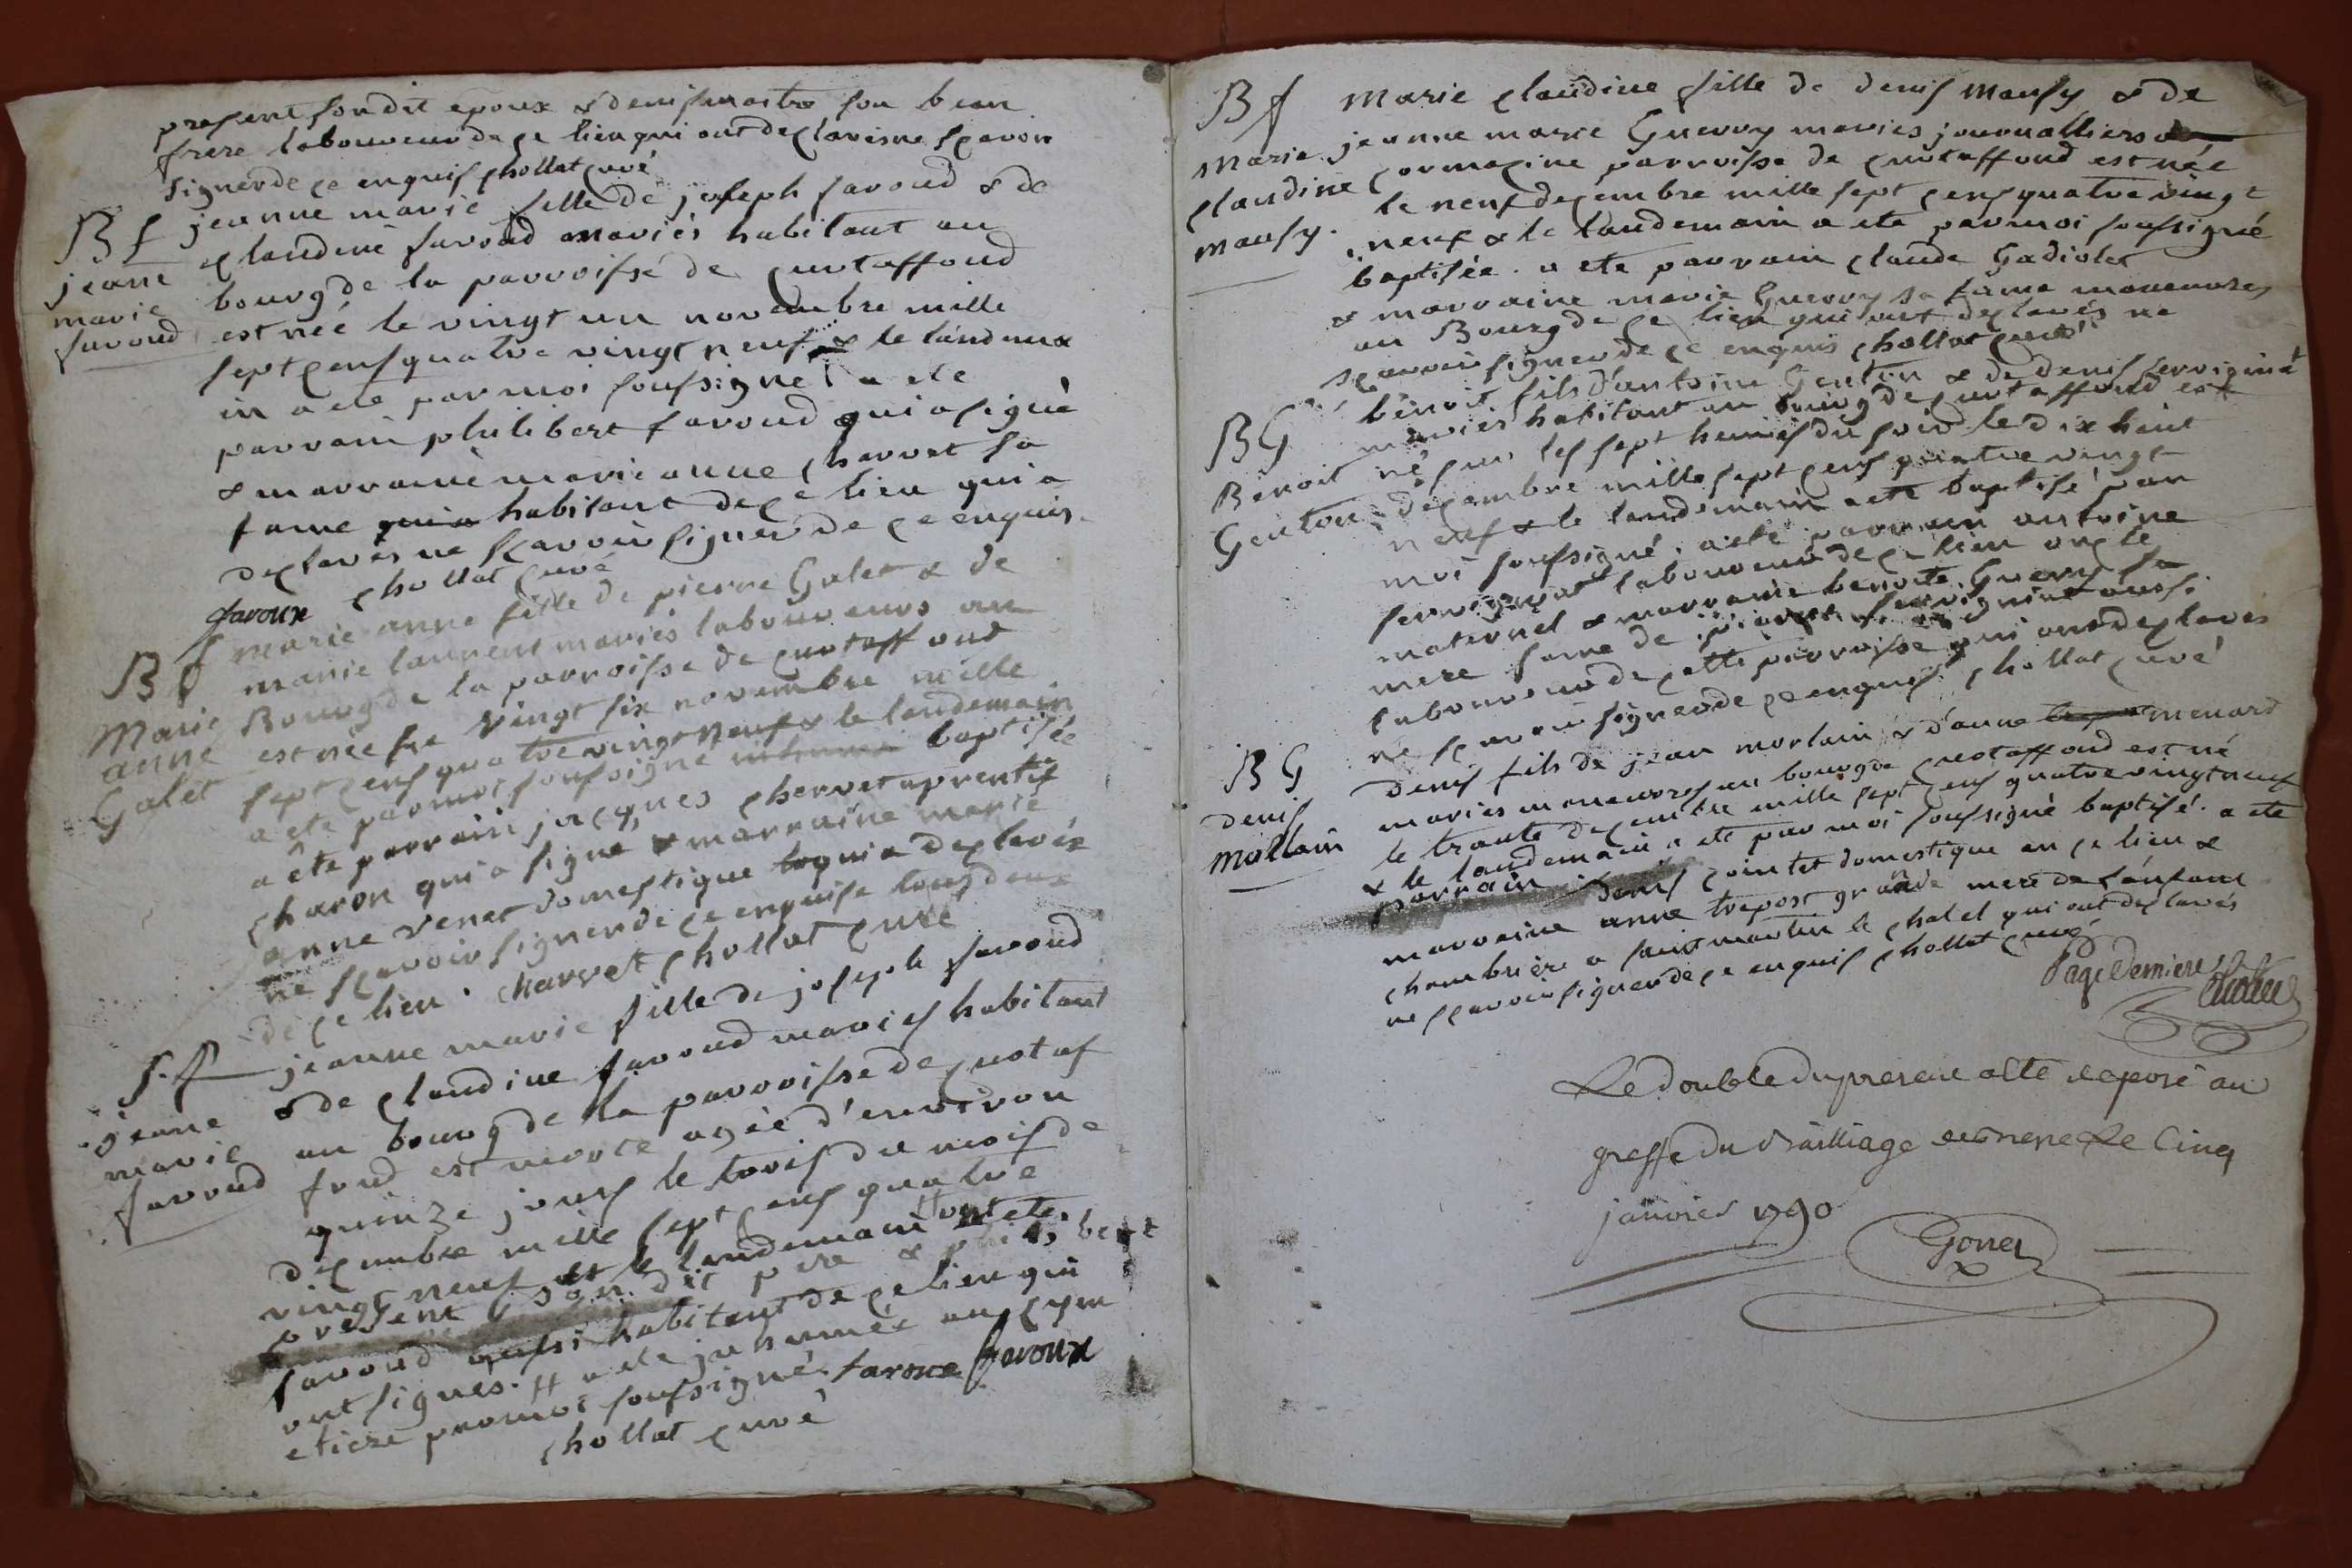 present son dit epoux & denis maitre son beau
frere laboureur de ce lieu qui ont declarés ne sçavoir
signer de ce enquis chollat curé
B f
jeane
marie
favoud
jeanne marie fille de joseph favoud & de
claudine favoud mariés habitant au
bourg de la parroisse de curtaffoud
est née le vingt un novembre mille
sept cens quatre vingt neuf & le landema
in a eté par moi soussigné a ete
parrain philibert favoud qui a signé
& marraine marie anne charvet sa
fame qui a habitant de ce lieu qui a
declarés ne sçavoir signer de ce enquis
favoux chollat curé
B f
Marie
anne
Galet
marie anne fille de pierre Galet & de
marie laurent mariés laboureurs au
Bourg de la parroisse de curtaffoud
est née le vingt six novembre mille
sept cens quatre vingt neuf & le landemain
a ete par moi soussigné baptisée
a été parrain jacques chervet aprentif
charon qui a signé & marraine marie
anne venet domestique qui a declarée
ne sçavoir signer de ce enquise tous deux
de ce lieu. charvet chollat curé
S. f
jeane
marie
favoud
jeanne marie fille de joseph favoud
& de claudine favoud mariés habitant
au bourg de la parroisse de curtaf
foud est morte agée d'environ
quinze jours le trois du mois de
decembre mille sept cens quatre
vingt neuf et le landemain # ont ete
present son dit pere & philibert
favoud aussi habitant de ce lieu qui
ont signés. # a ete inhumée au cym
etiere par moi soussigné. favoux favoux
chollat curé
B f
Marie
claudine
mausy.
Marie claudine fille de denis mausy & de
jeanne marie Guerry mariés journalliers
cormozine parroisse de curtaffoud est née
le neuf decembre mille sept cens quatre vingt
neuf & le landemain a ete par moi soussigné
baptisée. a ete parrain claude Gadiolet
& marraine marie Guerry sa fame maneuvres
au Bourg de ce lieu qui ont declarés ne
sçavoir signer de ce enquis chollat curé
B G
Benoit
Genton
benoit fils d'antoine Genton & de denis servignat
mariés habitant au bourg de curtaffoud est
né sur les sept heures du soir le dix huit
decembre mille sept cens quatre vingt
neuf & le landemain a ete baptisé par
moi soussigné. a eté parrain antoine
servignat laboureur de ce lieu oncle
maternel & marraine benoite Guerry sa
mere fame de pierre servignat aussi
laboureur de cette parroisse qui ont declarés
ne sçavoir signer de ce enquis chollat curé
B G
denis
mollain
denis fils de jean morlain & d'anne menard
mariés maneuvres au bourg de curtaffoud est né
le trante decembre mille sept cens quatre vingt neuf
& le landemain a ete par moi soussigné baptisé. a ete
parrain denis cointet domestique en ce lieu &
marraine anne trepost grande mere de l'enfant
chambriere a saint martin le chatel qui ont declarés
ne sçavoir signer de ce enquis chollat curé
Page derniere
Le double du present acte deposé au
greffe du Bailliage de Bresse Le Cinq
janvier 1790